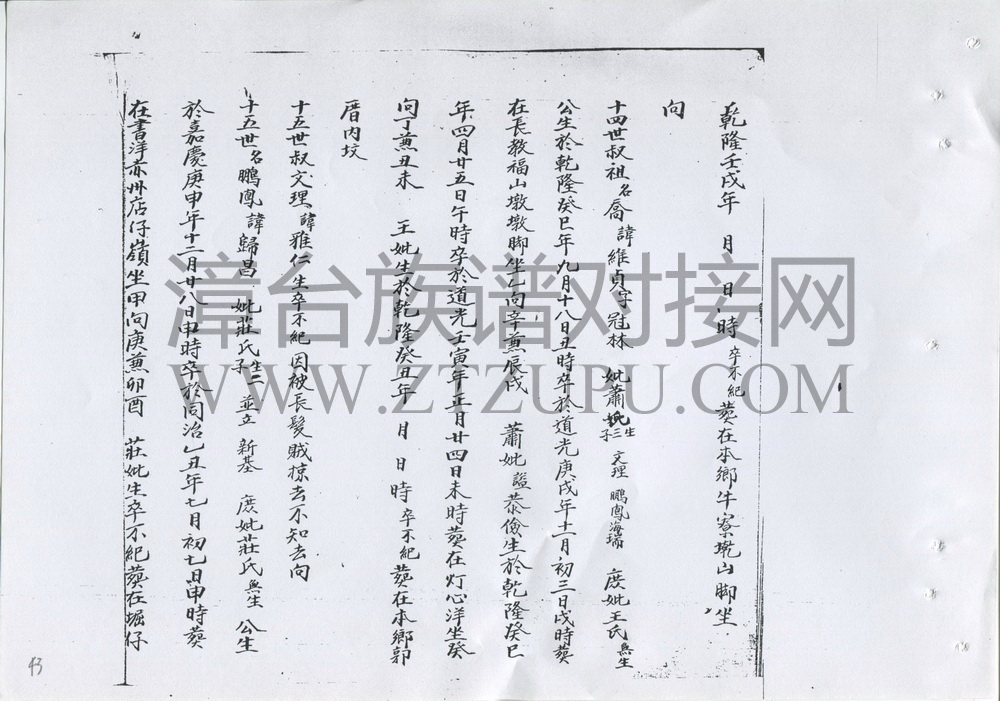 乾隆壬戌年 月 日 時 卒不紀 葬在本鄉牛寮墘山脚坐
向
十四世叔祖名喬諱維貞字冠林 妣蕭氏生三子 文理 鵬鳳 海瑞 庶妣王氏無生
公生於乾隆癸巳年九月十八日丑時卒於道光庚戌年十一月初三日戌時葬
在長教福山墩墩脚坐乙向辛兼辰戌 蕭妣謚恭儉生於乾隆癸巳
年四月廿五日午時卒於道光壬寅年正月廿四日未時葬在灯心洋坐癸
向丁兼丑未 王妣生於乾隆癸丑年 月 日 時 卒不紀 葬在本鄉郭
厝内坟
十五世叔文理諱雅仁生卒不紀因被長髮賊掠去不知去向
十五世名鵬鳳諱歸昌 妣莊氏生二子 並立 新基 庶妣莊氏無生 公生
於嘉慶庚申年十二月廿八日申時卒於同治乙丑年七月初七日申時葬
在書洋赤州店仔嶺坐甲向庚兼卯酉 莊妣生卒不紀葬在堀仔
43
漳台族谱对接网
WWW.ZTZUPU.COM